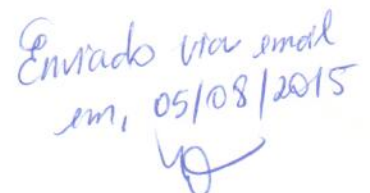 Enviado via email
em, 05/08/2015